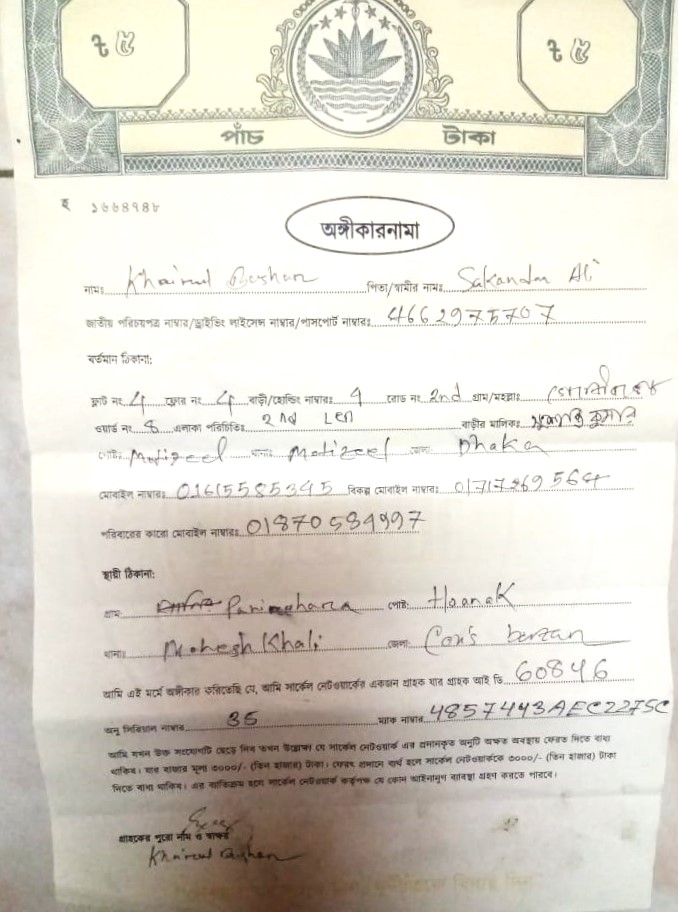 ৳ ৫ ৳ ৫
পাঁচ টাকা
হ ১৬৬৪৭৪৮
অঙ্গীকারনামা
নামঃ Khairul Bashar পিতা/স্বামীর নামঃ Sakandar Ali
জাতীয় পরিচয়পত্র নাম্বার/ড্রাইভিং লাইসেন্স নাম্বার/পাসপোর্ট নাম্বারঃ 4662975707
বর্তমান ঠিকানা:
ফ্লাট নং 4 ফ্লোর নং 4 বাড়ী/হোল্ডিং নাম্বারঃ 9 রোড নং 2nd গ্রাম/মহল্লাঃ
ওয়ার্ড নং 8 এলাকা পরিচিতিঃ 2nd Len বাড়ীর মালিকঃ কুমার
পোষ্টঃ Motizeel থানাঃ Motizeel জেলাঃ Dhaka
মোবাইল নাম্বারঃ 01615585345 বিকল্প মোবাইল নাম্বারঃ 01717269564
পরিবারের কারো মোবাইল নাম্বারঃ 01870584997
স্থায়ী ঠিকানা:
গ্রামঃ পোষ্টঃ Hoanak
থানাঃ Mohesh Khali জেলাঃ Cox's bazzan
আমি এই মর্মে অঙ্গীকার করিতেছি যে, আমি সার্কেল নেটওয়ার্কের একজন গ্রাহক যার গ্রাহক আই ডি 60846
অনু সিরিয়াল নাম্বার 35 ম্যাক নাম্বার 4857443AEC2275C
আমি যখন উক্ত সংযোগটি ছেড়ে দিব তখন উল্লেখ্য যে সার্কেল নেটওয়ার্ক এর প্রদানকৃত অনুটি অক্ষত অবস্থায় ফেরত দিতে বাধ্য
থাকিব। যার বাজার মূল্য ৩০০০/- (তিন হাজার) টাকা। ফেরৎ প্রদানে ব্যর্থ হলে সার্কেল নেটওয়ার্ককে ৩০০০/- (তিন হাজার) টাকা
দিতে বাধ্য থাকিব। এর ব্যতিক্রম হলে সার্কেল নেটওয়ার্ক কর্তৃপক্ষ যে কোন আইনানুগ ব্যবস্থা গ্রহণ করতে পারবে।
গ্রাহকের পুরো নাম ও স্বাক্ষর
Khairul Bashar